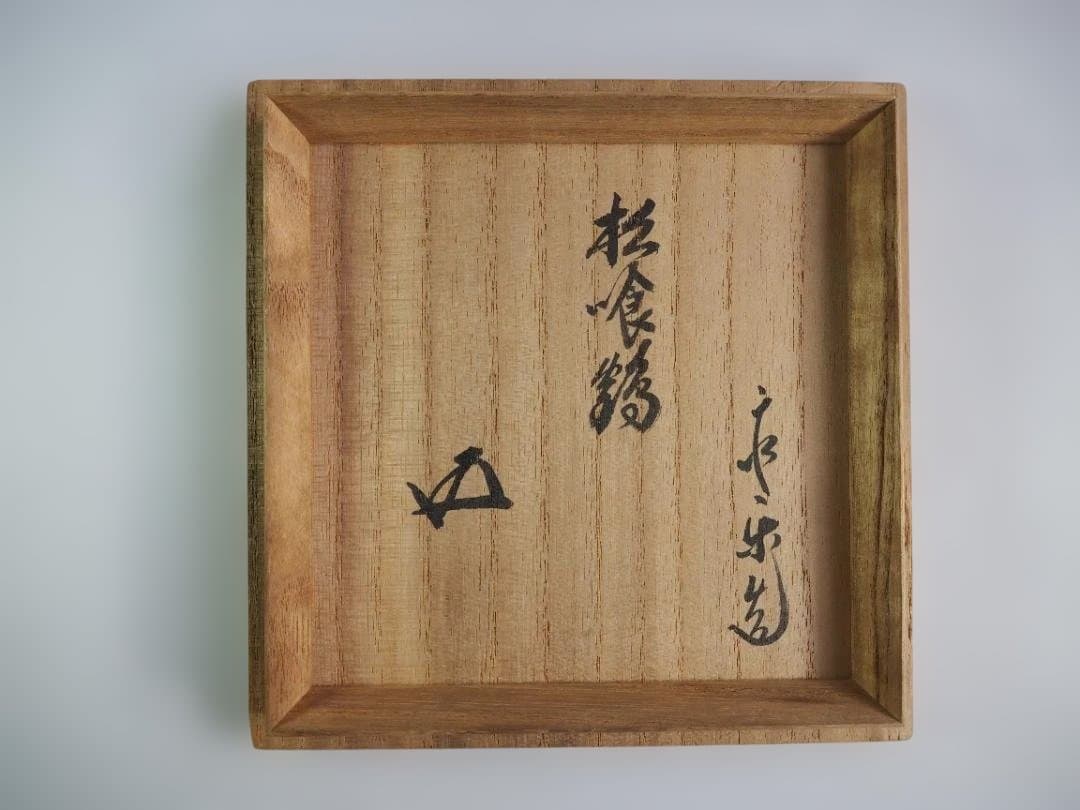 永楽造
松喰鶴